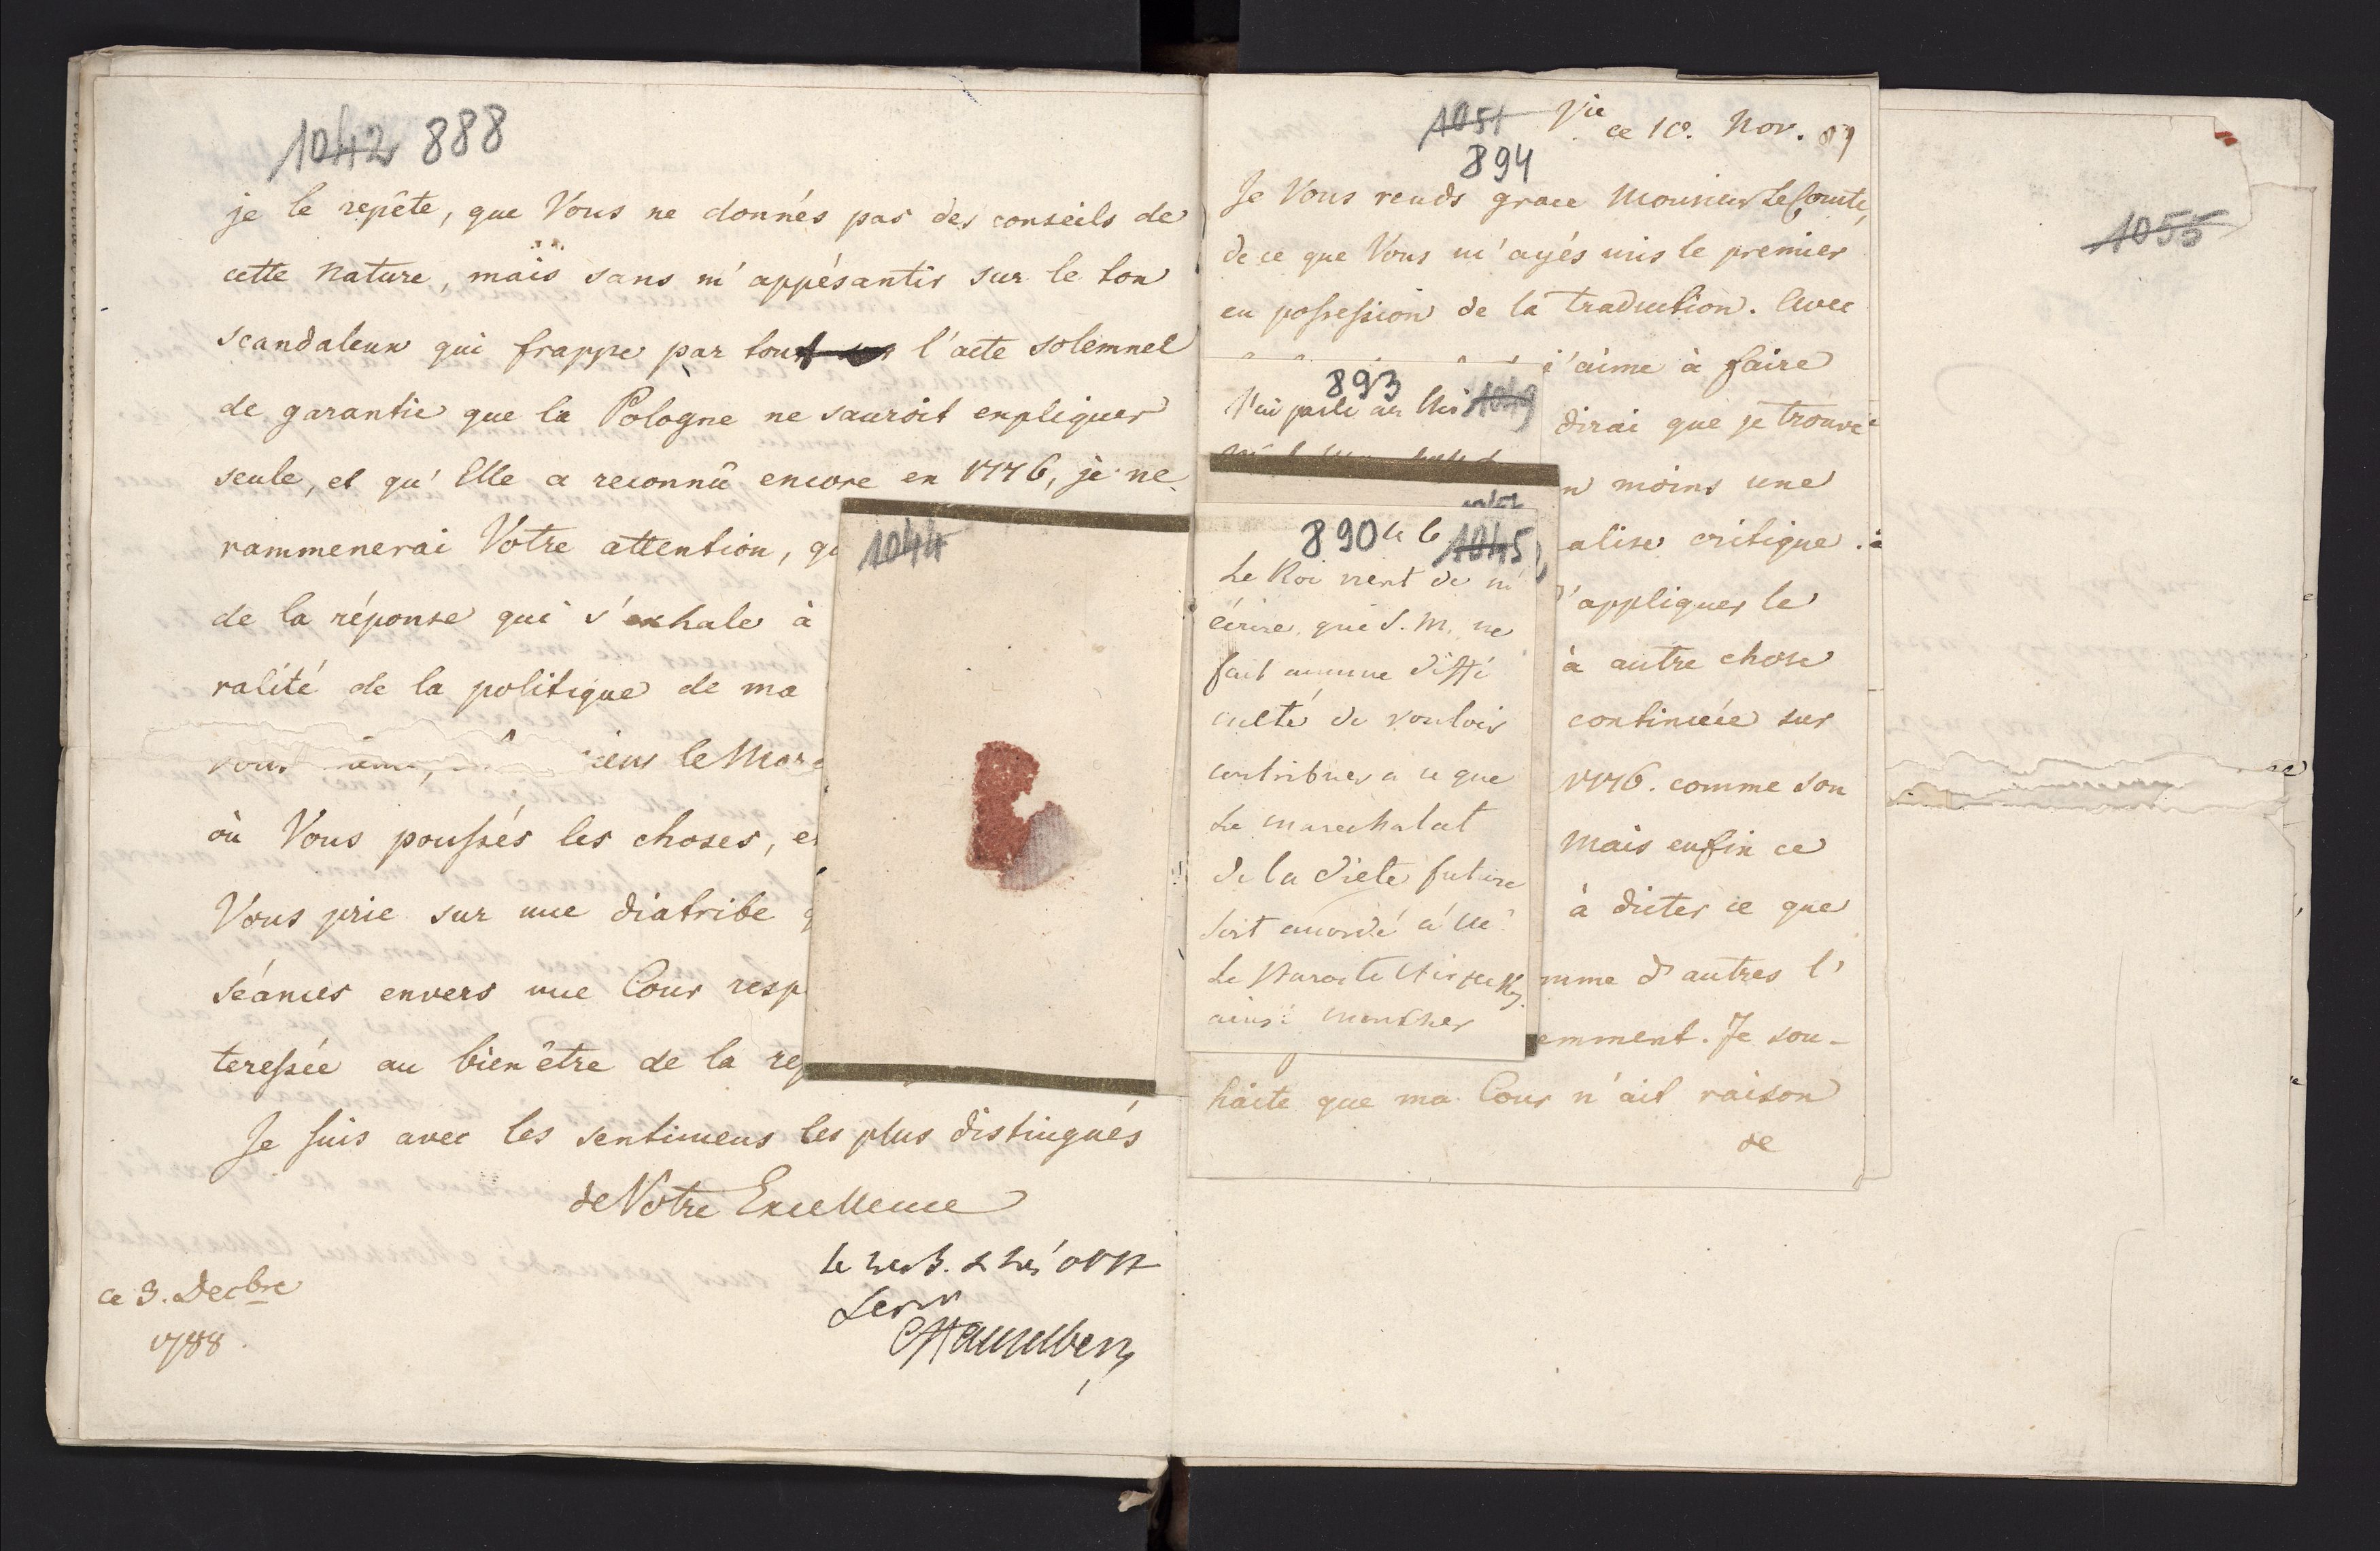 1042 888
je le repête, que Vous ne donnés pas des conseils de
cette Nature, mais sans m'appésantir sur le ton
scandaleux qui frappe par tout l'acte solemnel
de garantie que la Pologne ne sauroit expliquer
seule, et qu'Elle a reconnû encore en 1776, je ne
rammenerai Votre attention, qu
de la réponse qui s'exhale à
ralité de la politique de ma
vous
ieur le Mare
où Vous poussés les choses, et
Vous prie sur une diatribe q
séances envers une Cour resp
teressée au bien être de la rep
Je suis avec les sentimens les plus distingués
de Votre Excellence
ce 3. Decbre
1788.
Stackelberg
1044
1051
ce 10. Nov. 89
894
Je Vous rends grace Monsieur le Comte,
de ce que Vous m'ayés mis le premier
en possession de la traduction. Avec
j'aime à faire
dirai que je trouve
n moins une
alise critique. à
l'appliquer le
à autre chose
continuée sur
1776. comme son
Mais enfin ce
à dicter ce que
mme d'autres l'
emment. Je sou-
haite que ma Cour n'ait raison
de
893
J'ai parlé au 1049
890 1045
Le Roi vient de m'
écrire, que S. M. ne
fait aucune diffi
culté de vouloir
contribuer a ce que
Le marechalat
de la diete future
soit accordé à Mr
Le Staroste
ainsi mon cher
1055